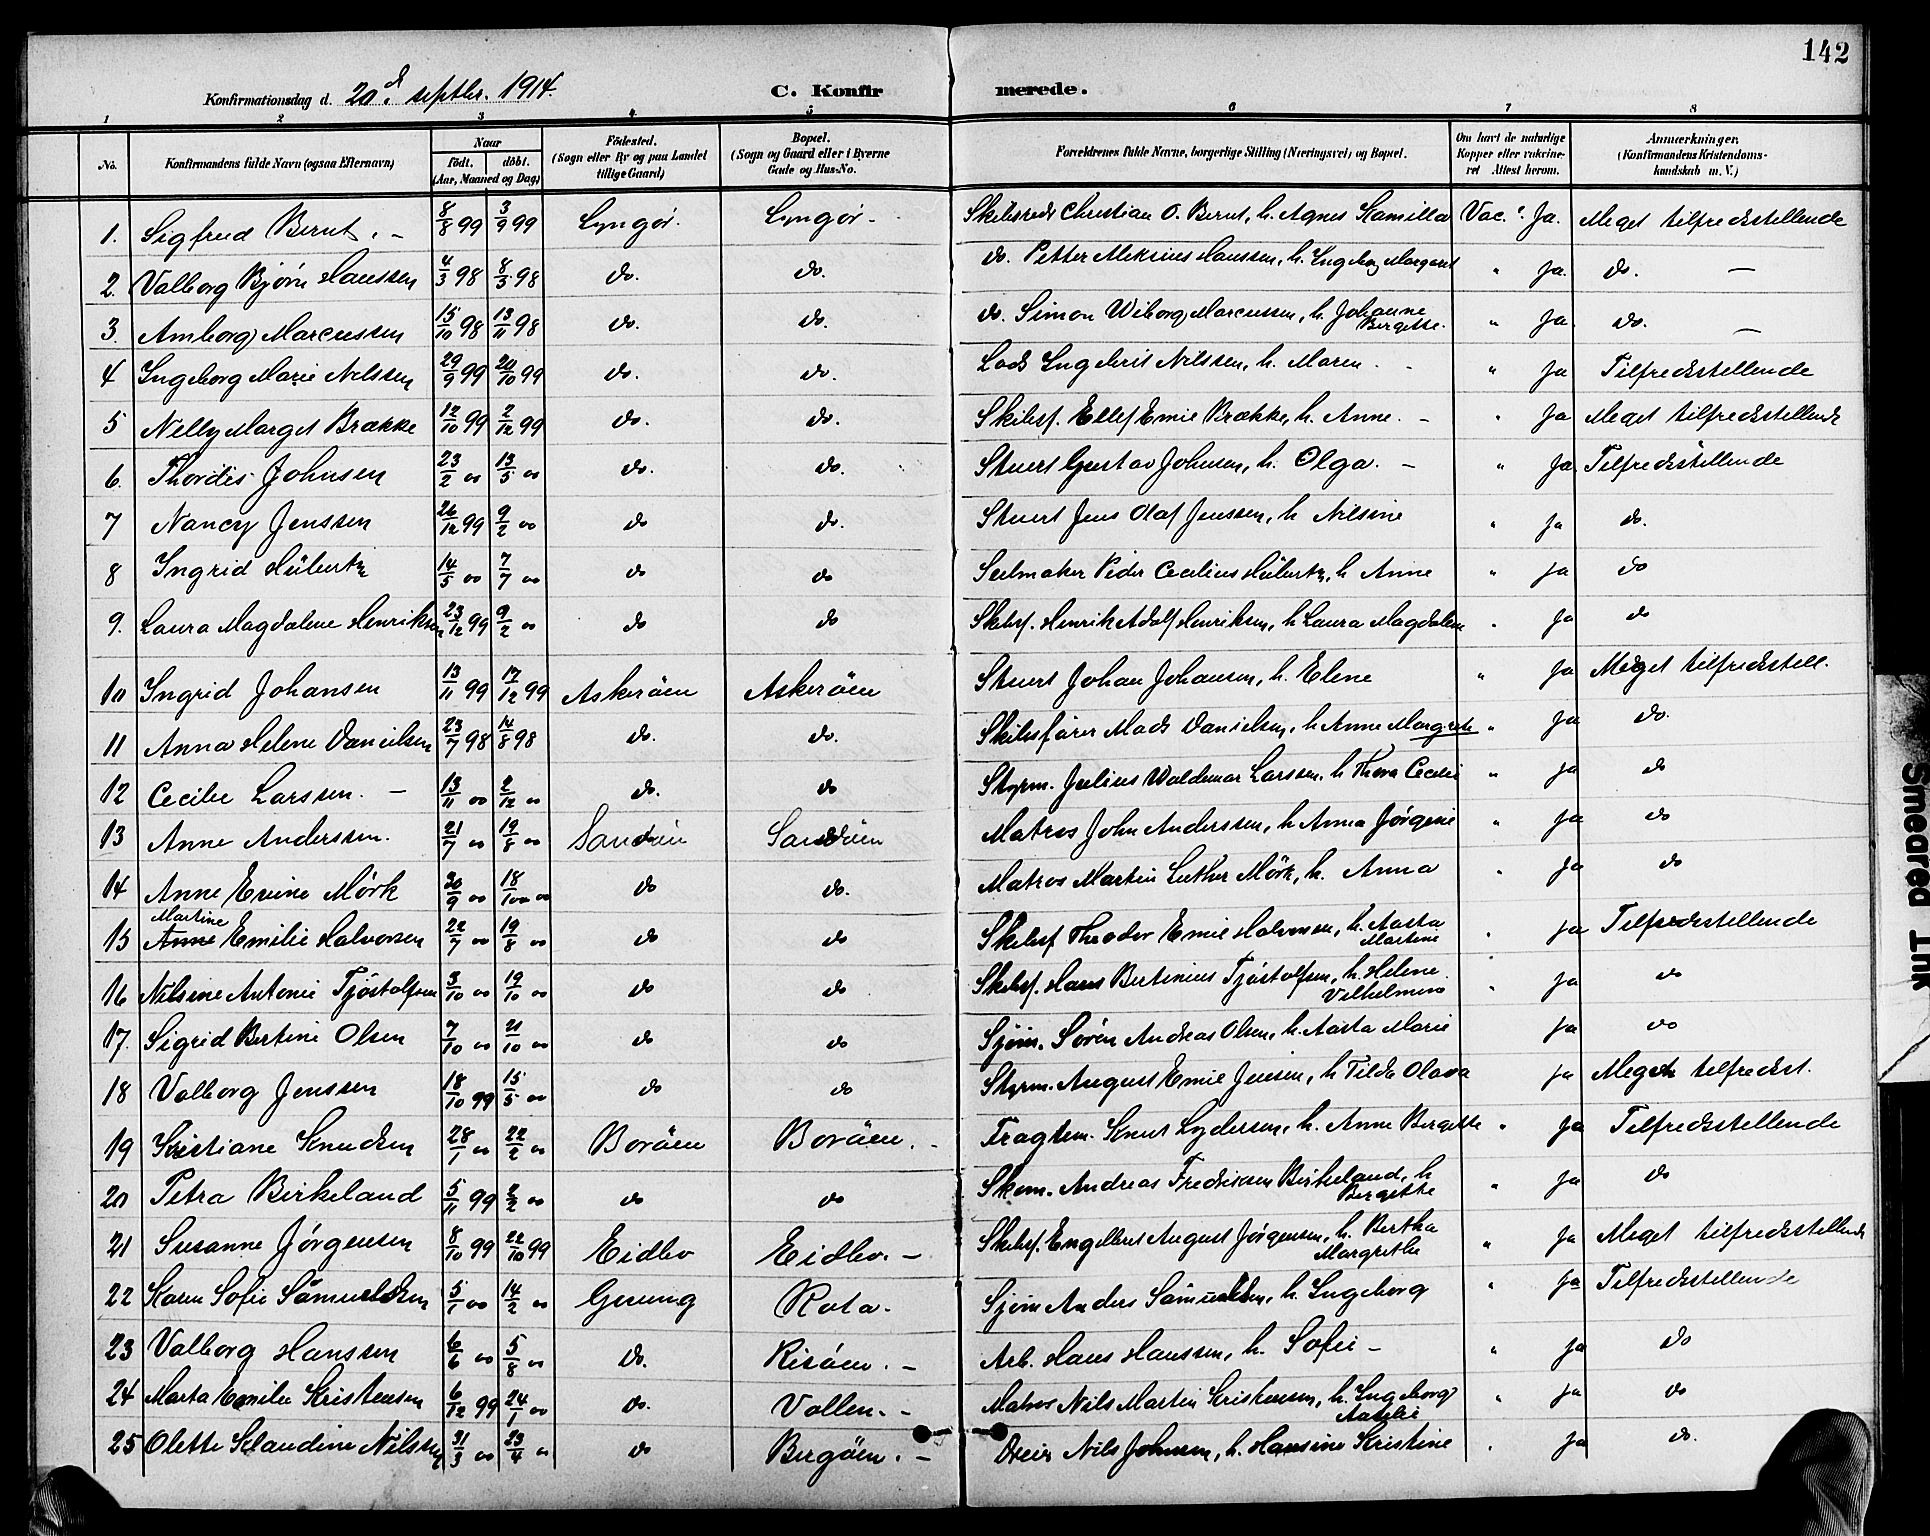 142
Konfirmationsdag d. 20d septbr. 1914.
C. Konfirmerede.
1 2 3 4 5 6 7 8
No.
Konfirmandens fulde Navn (ogsaa Efternavn)
Naar
født. døbt.
(Aar, Maaned og Dag)
Födested.
(Sogn eller By og paa Landet
tillige Gaard)
Bopæl.
(Sogn og Gaard eller i Byerne
Gade og Hus-No.
Forældrenes fulde Navne, borgerlige Stilling (Næringsvei) og Bopæl.
Om havt de naturlige
Kopper eller vakcine-
ret Attest herom.
Anmærkninger.
(Konfirmandens Kristendoms-
kundskab m. V.)
1. Sigfred Bernt. - 8/8 99 3/9 99 Lyngör. Lyngör - Skibsreder Christian O. Bernt, h. Agnes Kamilla Vac. Ja. Meget tilfredsstellende
2. Valborg Bjørn Hanssen 4/3 98 8/3 98 do. do. do. Petter Meksius Hanssen, h. Ingeborg Margaret " Ja. do. —
3. Amborg Marcussen 15/10 98 13/11 98 do. do. do. Simon Wiborg Marcussen, h. Johanne Bergette. " Ja. do. —
4 Ingeborg Marie Nilssen 29/9 99 20/10 99 do. do. Lods Ingebrit Nilssen, h. Maren. " Ja Tilfredsstellende
5 Nelly Marget Brække 12/10 99 2/12 99 do. do. Skibsf. Ellef Emil Brække, h. Anne. - " Ja Meget tilfredsstellende
6. Thordis Johnsen 23/2 00 13/5 00 do. do. Stuert Gustav Johnsen, h. Olga. - " Ja. Tilfredsstellende
7 Nancy Jenssen 26/12 99 9/2 00 do do. Stuert Jens Olaf Jenssen, h Nilsine " ja do.
8 Ingrid Hübertz 14/5 00 7/7 00 do do Seilmaker Peder Cecilius Hübertz, h Anne " ja do
9. Laura Magdalene Henriksen 23/12 99 9/2 00 do do Skibsf. Henrik Adolf Henriksen, h Laura Magdalene " Ja do
10 Ingrid Johansen 13/11 99 17/12 99 Askeröen Askeröen Stuert Johan Johansen, h. Elene " Ja Meget tilfredsstell.
11 Anna Helene Danielsen 23/7 98 14/8 98 do. do. Skibsfører Mads Danielsen, h Anne Margrete " Ja do.
12 Cecilie Larssen. - 13/11 00 2/12 00 do. do Styrm. Julius Waldemar Larssen, h Thora Cecilie " Ja do
13 Anne Anderssen. 21/7 00 19/8 00 Sandöen Sandöen Matros John Anderssen, h Anna Jørgine " Ja do
14 Anne Evine Mörk 20/9 00 18/10 00 do do. Matros Martin Luther Mörk, h. Anna " Ja do
15 Anne Martine Emilie Halvorsen 22/7 00 19/8 00 do do Skibsf Theodor Emil Halvorsen, h. Aasta Martine " Ja Tilfredsstellende
16 Nilsine Antonie Tjöstolfsen 3/10 00 19/10 00 do do Skibsf. Hans Bertinius Tjöstolfsen, h. Helene Vilhelmine " Ja do
17. Sigrid Bertine Olsen 7/10 00 21/10 00 do do Sjöm. Sörén Andreas Olsen, h. Aasta Marie Ja do
18 Valborg Jenssen 18/10 99 15/5 00 do do Styrm. August Emil Jensen, h Tilda Olava ja Meget tilfredsst.
19 Kristiane Knudsen 28/1 00 22/2 00 Boröen Boröen. - Fragtem. Knut Lydersen, h. Anne Bergette " ja Tilfredsstellende
20 Petra Birkeland 5/11 99 2/2 00 do do Skem. Andreas Fredriksen Birkeland, h Bergette " ja do
21 Susanne Jörgensen 8/10 99 22/10 99 Eidbo Eidbo. - Skibsf. Engelbret August Jörgensen, h. Bertha Margrethe " Ja Meget tilfredsstellende
22 Karen Sofie Samuelsen 5/1 00 14/2 00 Gjerning Rota. Sjöm Anders Samuelsen, h. Ingeborg " Ja Tilfredsstellende
23 Valborg Hanssen 6/6 00 5/8 00 do. Risöen. - Arb. Hans Hanssen, h. Sofie - " ja do
24 Marta Emilie Kristensen 6/12 99 24/1 00 do. Vollen. - Matros Nils Martin Kristensen, h. Ingeborg Aasilie " ja do
25 Olette Klaudine Nilssen 31/3 00 23/4 00 do Bergöen. - Nils Johnsen, h. Hansine Kristine " ja do.
Smeared Ink